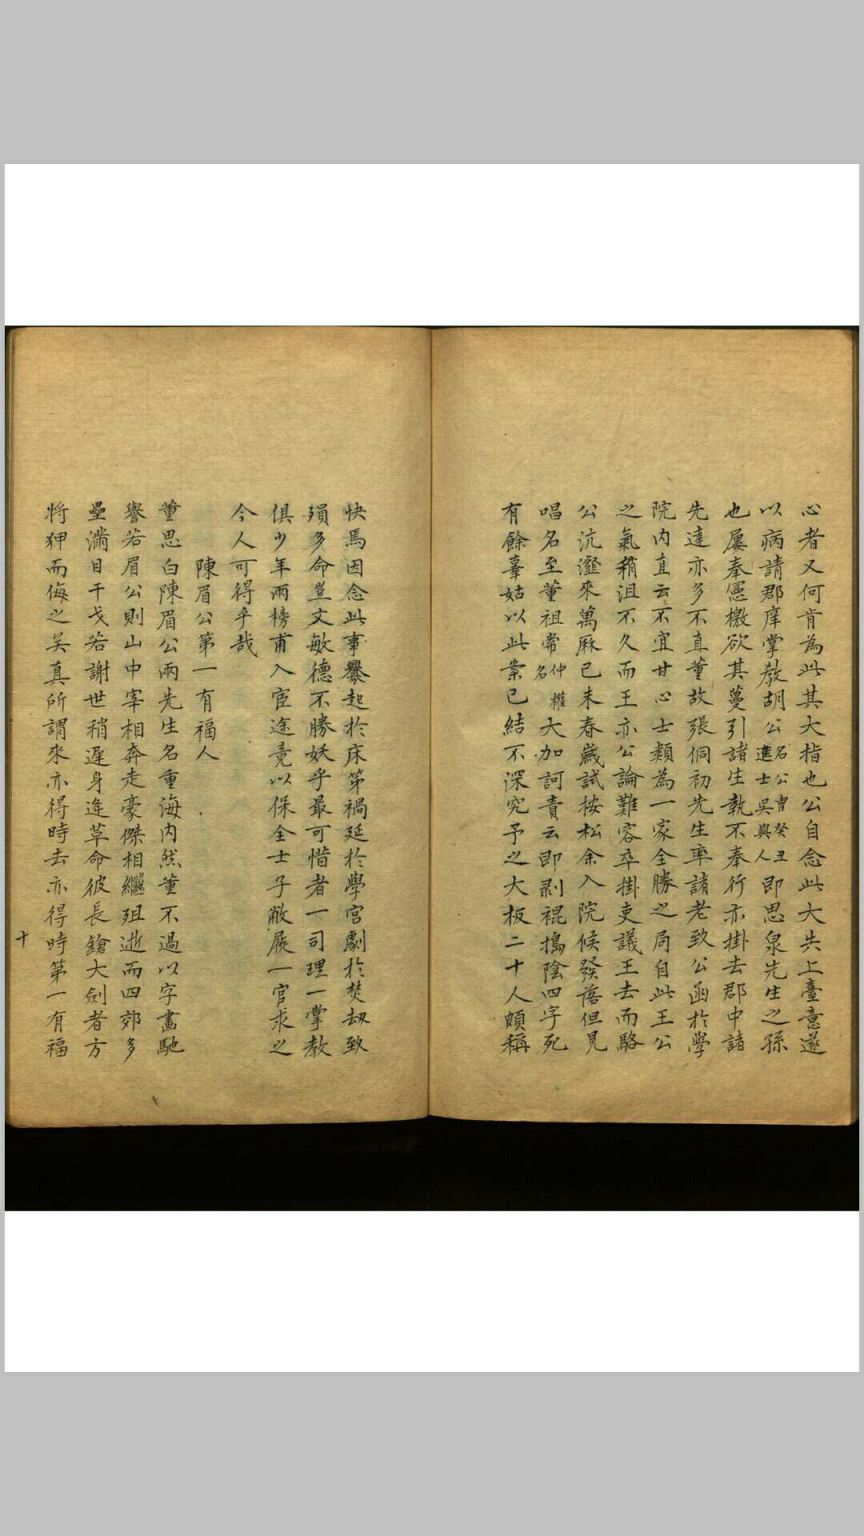 心者又何肯為此其大指也公自念此大失上臺意遂
以病請郡庠掌教胡公名公冑癸丑進士吳興人即思泉先生之孫
也屢奉憲檄欲其蔓引諸生執不奉行亦掛去郡中諸
先達亦多不直董故張侗初先生率諸老致公函於學
院內直云不宜甘心士類為一家全勝之局自此王公
之氣稍沮不久而王亦公論難容卒掛吏議王去而駱
公沆瀣來萬厤己未春歲試按松余入院候發落但見
唱名至董祖常仲權名大加訶責云即剥裩搗陰四字死
有餘辜姑以此案已結不深究予之大板二十人頗稱
快馬因念此事釁起於床笫禍延於學宫劇於焚刼致
殞多命豈文敏德不勝妖乎最可惜者一司理一掌教
俱少年兩榜甫入宦途竟以保全士子敝屣一官求之
今人可得乎哉
陳眉公第一有福人
董思白陳眉公兩先生名重海内然董不過以字畫馳
譽若眉公則山中宰相奔走豪傑相繼殂逝而四郊多
壘滿目干戈若謝世稍遲身逢草命彼長鎗大劍者方
將狎而侮之矣真所謂來亦得時去亦得時第一有福
十